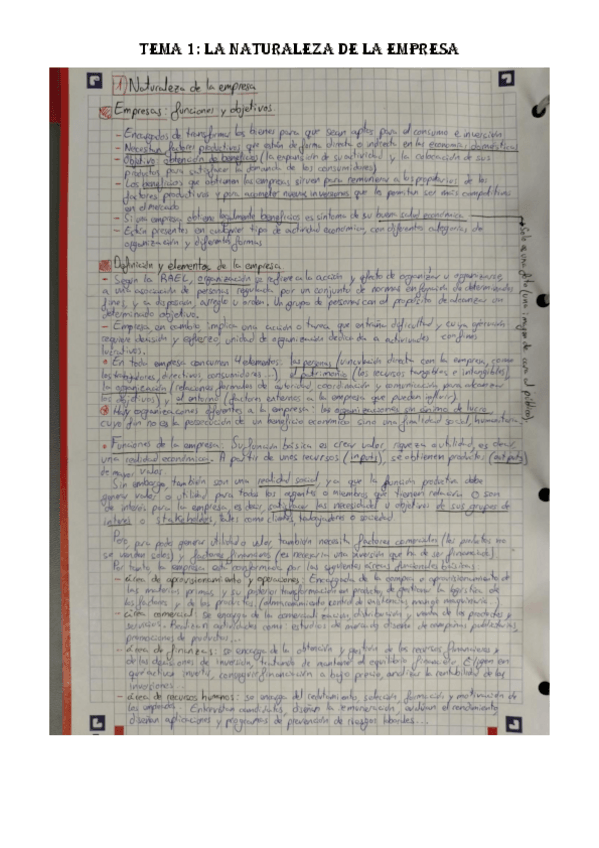 TEMA 1: LA NATURALEZA DE LA EMPRESA
1) Naturaleza de la empresa
Empresas: funciones y objetivos
- Encargados de transformar los bienes para que sean aptos para el consumo e inversión
- Necesitan factores productivos que están de forma directa o indirecta en las economías domésticas
- Objetivo: obtención de beneficio (la expansión de su actividad y la colocación de sus
productos para satisfacer la demanda de los consumidores)
- Los beneficios que obtienen las empresas sirven para remunerar a los propietarios de los
factores productivos y para acometer nuevas inversiones que le permitan ser más competitivas
en el mercado
- Si una empresa obtiene legalmente beneficios es síntoma de su buena salud económica
- Están presentes en cualquier tipo de actividad económica, con diferentes categorías de
organización y diferentes formas
Solo es una cifra (una imagen de cara al público)
Definición y elementos de la empresa
- Según la RAEL, organización se refiere a la acción y efecto de organizar u organizarse,
a una asociación de personas regulada por un conjunto de normas en función de determinados
fines, y a disposición, arreglo u orden. Un grupo de personas con el propósito de alcanzar un
determinado objetivo.
- Empresa en cambio implica una acción o tarea que entraña dificultad y cuya ejecución
requiere decisión y esfuerzo, unidad de organización dedicada a actividades con fines
lucrativos.
• En toda empresa concurren 4 elementos: las personas (vinculación directa con la empresa, como
los trabajadores, directivos, consumidores...), el patrimonio (los recursos tangibles e intangibles),
la organización (relaciones formales de autoridad, coordinación y comunicación para alcanzar
los objetivos) y el entorno (factores externos a la empresa que pueden influir).
Hay organizaciones diferentes a la empresa: las organizaciones sin ánimo de lucro,
cuyo fin no es la persecución de un beneficio económico sino una finalidad social, humanitaria,
• Funciones de la empresa: Su función básica es crear valor, riqueza o utilidad, es decir,
una realidad económica. A partir de unos recursos (inputs), se obtienen productos (outputs)
de mayor valor.
Sin embargo también son una realidad social, ya que la función productiva debe
generar valor o utilidad para todos los agentes o miembros que tienen relación o son
de interés para la empresa, es decir, satisfacer las necesidades u objetivos de sus grupos de
interés o stakeholders, tales como clientes, trabajadores o sociedad
Pero para poder generar utilidad o valor también necesita factores comerciales (los productos no
se venden solos) y factores financieros (es necesaria una inversión que ha de ser financiada)
Por tanto la empresa está conformada por las siguientes áreas funcionales básicas:
- área de aprovisionamiento y operaciones: Encargada de la compra o aprovisionamiento de
las materias primas y su posterior transformación en producto, de gestionar la logística de
los factores y de los productos (almacenamiento, control de existencias, manejo maquinaria)
- área comercial: se encarga de la comercialización, distribución y venta de los productos y
servicios. Realizan actividades como estudios de mercado, diseño de campañas publicitarias,
promociones de productos...
- área de finanzas: se encarga de la obtención y gestoría de los recursos financieros y
de las decisiones de inversión, tratando de mantener el equilibrio financiero. Eligen en
qué activos invertir, conseguir financiación a bajo precio, analizar la rentabilidad de las
inversiones
- área de recursos humanos: se encarga del reclutamiento, selección, formación y motivación de
los empleados. Entrevistan candidatos, diseñan la remuneración, evalúan el rendimiento,
diseñan aplicaciones y programas de prevención de riesgos laborales...